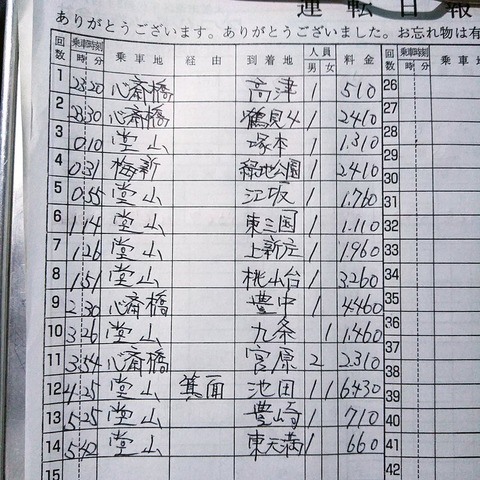 運転日報
ありがとうございます。ありがとうございました。お忘れ物は有
回数 乗車時刻 時 分 乗車地 経由 到着地 人員 男 女 料金 乗車時刻 回数 時 分 乗車
1 23 20 心斎橋 高津 1 510 26
2 23 30 心斎橋 鶴見4 1 2410 27
3 0 10 堂山 塚本 1 1.310 28
4 0 31 梅新 緑地公園 1 2410 30
5 0 55 堂山 江坂 1 1.760 31
6 1 14 堂山 東三国 1 1.110 32
7 1 26 堂山 上新庄 1 1.960 33
8 1 51 堂山 桃山台 1 3.260 34
9 2 30 心斎橋 豊中 1 4460 35
10 3 26 堂山 九条 1 1.460 36
11 3 54 心斎橋 宮原 2 2.310 37
12 4 25 堂山 箕面 池田 1 1 6430 39
13 5 25 堂山 豊崎 1 710 40
14 5 40 堂山 東天満 1 660 41
15 42